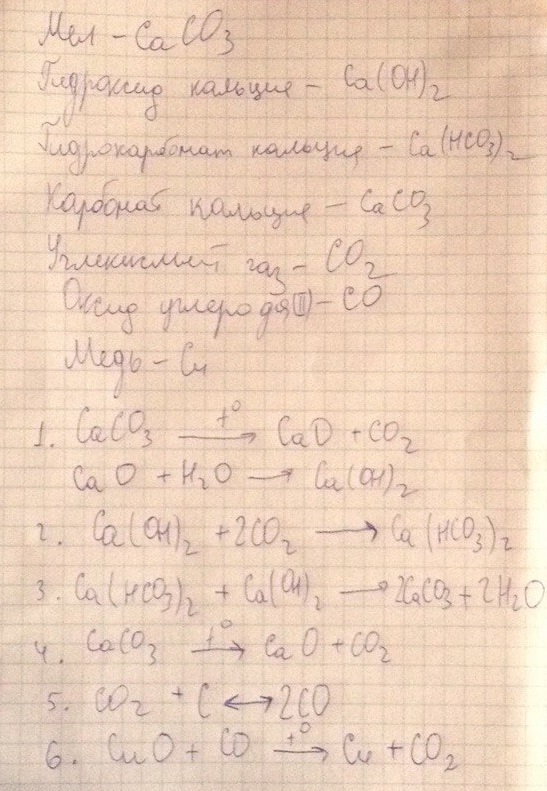 Мел – CaCO3
Гидроксид кальция – Ca(OH)2
Гидрокарбонат кальция – Ca(HCO3)2
Карбонат кальция – CaCO3
Углекислый газ – CO2
Оксид углерода(II) – CO
Медь – Cu
1. CaCO3 t°→ CaO + CO2
CaO + H2O → Ca(OH)2
2. Ca(OH)2 + 2CO2 → Ca(HCO3)2
3. Ca(HCO3)2 + Ca(OH)2 → 2CaCO3 + 2H2O
4. CaCO3 t°→ CaO + CO2
5. CO2 + C ↔ 2CO
6. CuO + CO t°→ Cu + CO2